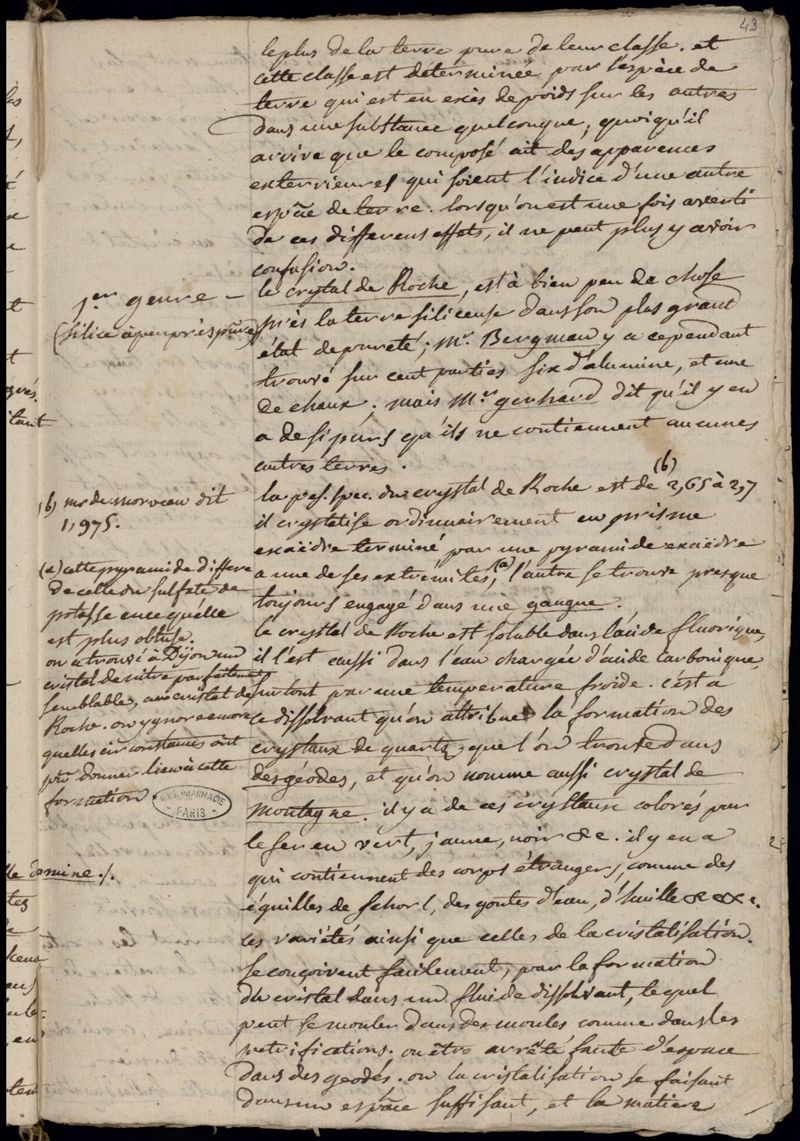 43
le plus de la terre pure de leur classe. et
cette classe est déterminée par l'espèce de
terre qui est en excès de poids sur les autres
dans une substance quelconque, quoiqu'il
arrive que le composé ait des apparences
exterieures qui soient l'indice d'une autre
espèce de terre. lorsqu'on est une fois averti
de ces differens effets, il ne peut plus y avoir
confusion.
1er genre –
(silice à peu près pure)
le crytal de Roche, est à bien peu de chose
près la terre siliceuse dans son plus grand
état de pureté; Mr. Bergman y a cependant
trouvé sur cent parties six d'alumine, et une
de chaux; mais Mr. gerhard dit qu'il y en
a de si purs qu'ils ne contiennent aucunes
autres terres.
(b) mr de morveau dit
1,975.
la pes. spec. du crystal de Roche est de (b) 2,65 à 2,7
il crystalise ordinairement en prisme
exaèdre terminé par une pyramide exaèdre
a une de ses extremités, (a) l'autre se trouve presque
toujours engagé dans une gangue.
(a) cette pyramide differe
de celle du sulfate de
potasse en ce qu'elle
est plus obtuse.
on a trouvé à Dijon un
cristal de nitre parfaitement
semblable, au cristal de
Roche. on ygnore encore
quelles circonstances ont
pu donner lieu à cette
formation
PHARMACIE
PARIS
le crystal de Roche est soluble dans l'acide fluorique,
il l'est aussi dans l'eau chargée d'acide carbonique,
surtout par une température froide. c'est a
ce dissolvant qu'on attribue la formation des
crystaux de quartz, que l'on trouve dans
des géodes, et qu'on nomme aussi crystal de
montagne. il y a de ces crystaux colorés par
le fer en vert, jaune, noir &c. il y en a
qui contiennent des corps étrangers, comme des
éguilles de schorl, des goutes d'eau, d'huille &c &c.
ces variétés ainsi que celles de la cristalisation.
se conçoivent facilement, par la formation
du cristal dans un fluide dissolvant, lequel
peut se mouler dans des moules comme dans les
petrifications. ou être arrêté faute d'espace
dans des geodes. ou la cristalisation se faisant
dans un espace suffisant, et la matiere